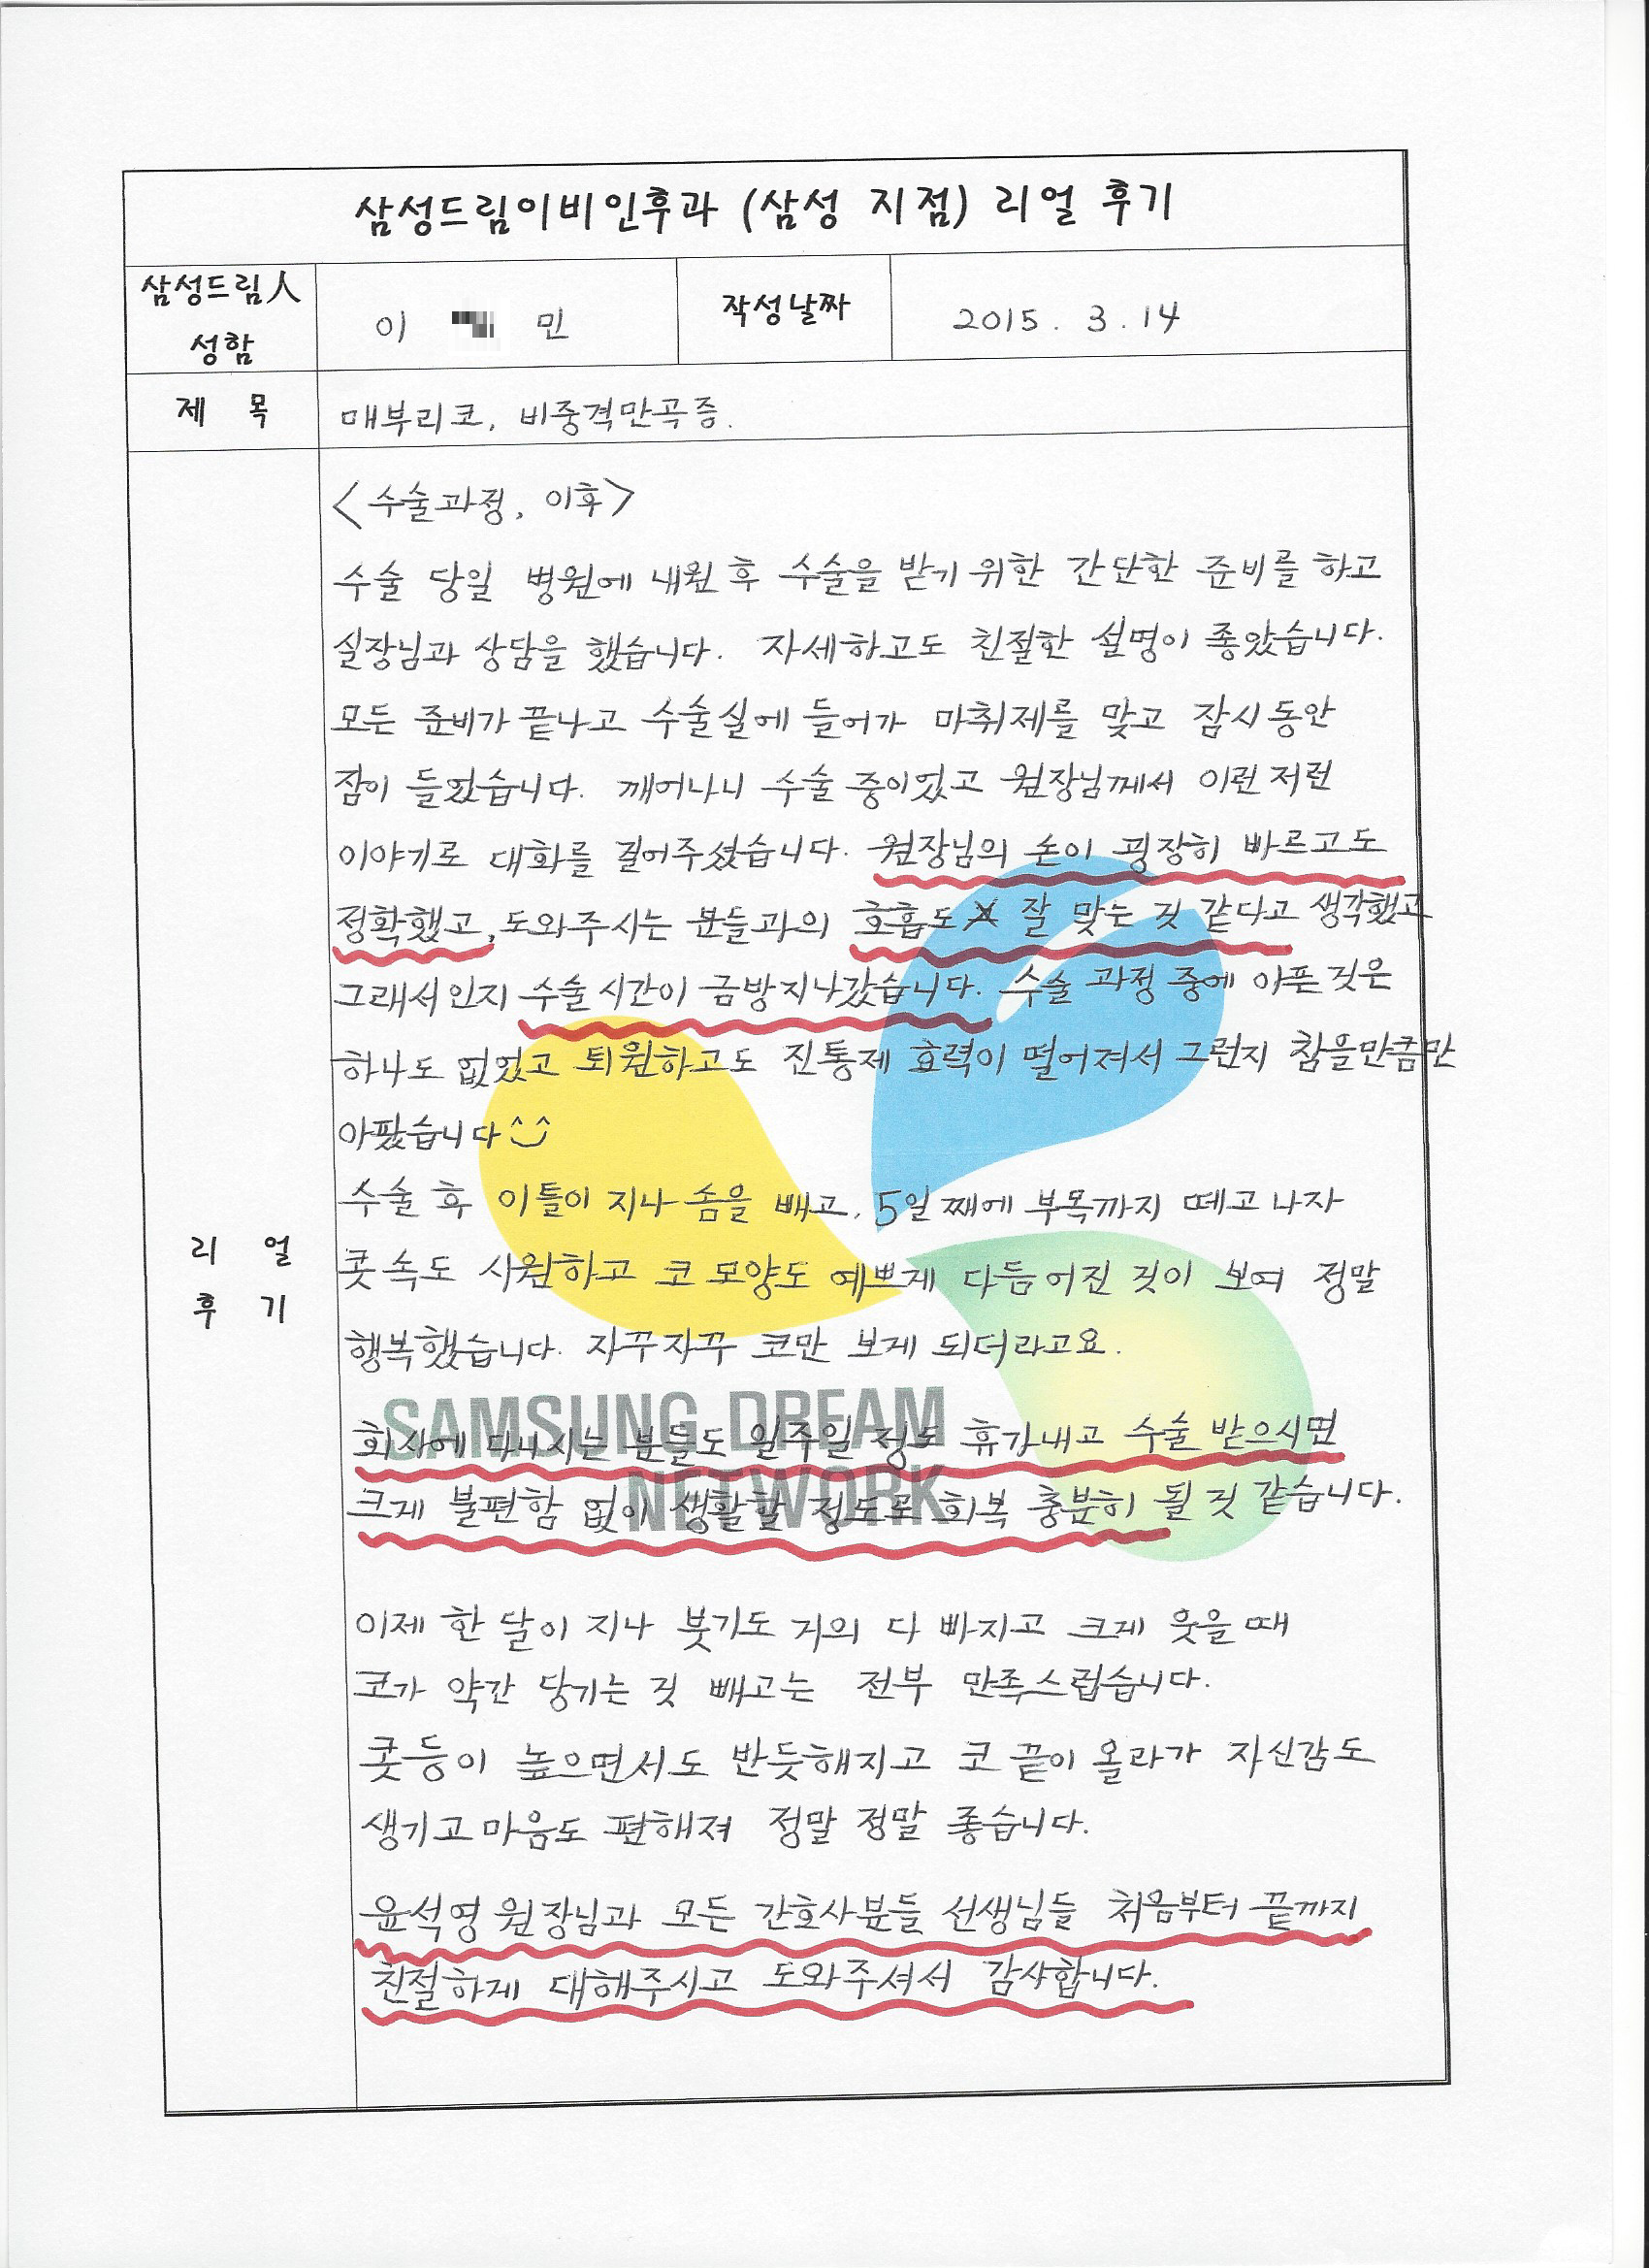 삼성드림이비인후과 (삼성 지점) 리얼 후기
삼성드림人
성함
이 민
작성날짜
2015. 3. 14
제 목
매부리코, 비중격만곡증.
<수술과정, 이후>
수술 당일 병원에 내원 후 수술을 받기 위한 간단한 준비를 하고
실장님과 상담을 했습니다. 자세하고도 친절한 설명이 좋았습니다.
모든 준비가 끝나고 수술실에 들어가 마취제를 맞고 잠시동안
잠이 들었습니다. 깨어나니 수술 중이었고 원장님께서 이런저런
이야기로 대화를 걸어주셨습니다. 원장님의 손이 굉장히 빠르고도
정확했고, 도와주시는 분들과의 호흡도 잘 맞는 것 같다고 생각했고
그래서인지 수술시간이 금방지나갔습니다. 수술 과정 중에 아픈것은
하나도 없었고 퇴원하고도 진통제 효력이 떨어져서 그런지 참을만큼만
아팠습니다^^
수술 후 이틀이 지나 솜을 빼고, 5일째에 부목까지 떼고 나자
콧속도 시원하고 코 모양도 예쁘게 다듬어진 것이 보여 정말
행복했습니다. 자꾸자꾸 코만 보게 되더라고요.
SAMSUNG DREAM
NETWORK
회사에 다니시는 분들도 일주일 정도 휴가내고 수술 받으시면
크게 불편함 없이 생활할 정도로 회복 충분히 될 것 같습니다.
이제 한 달이 지나 붓기도 거의 다 빠지고 크게 웃을때
코가 약간 당기는 것 빼고는 전부 만족스럽습니다.
콧등이 높으면서도 반듯해지고 코 끝이 올라가 자신감도
생기고 마음도 편해져 정말 정말 좋습니다.
윤석영 원장님과 모든 간호사분들 선생님들 처음부터 끝까지
친절하게 대해주시고 도와주셔서 감사합니다.
리 얼
후 기